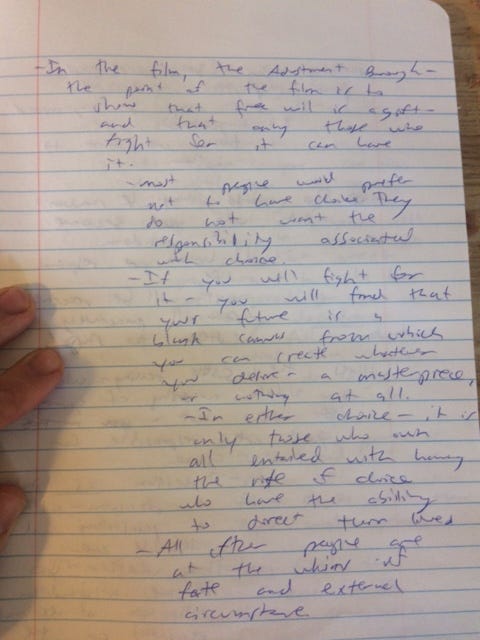 - In the film, the Adjustment Burough -
the point of the film is to
show that free will is a gift -
and that only those who
fight for it can have
it.
- most people would prefer
not to have choice. They
do not want the
responsibility associated
with choice.
- If you will fight for
it - you will find that
your future is a
blank canvas from which
you can create whatever
you desire - a masterpiece,
or nothing at all.
- In either choice - it is
only those who own
all entailed with having
the rite of choice
who have the ability
to direct their lives
- All other people are
at the whims of
fate and external
circumstance